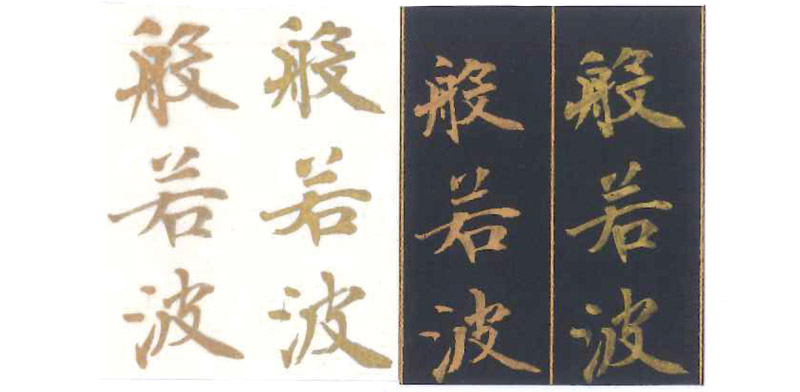 般若波
般若波
般若波
般若波